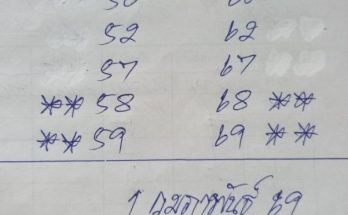 52 62
57 67
** 58 68 **
** 59 69 **
1 กุมภาพันธ์ 69